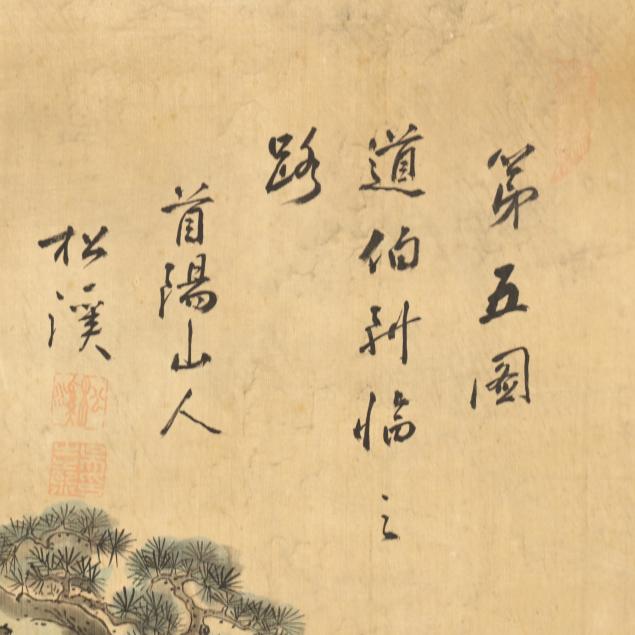 第五圖
道伯渊临之
路
首陽山人
松溪